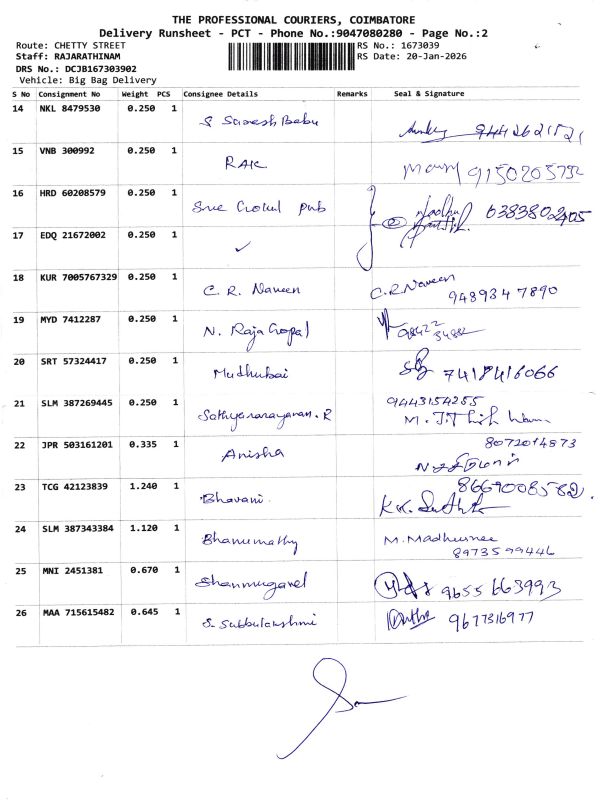 THE PROFESSIONAL COURIERS, COIMBATORE
Delivery Runsheet - PCT - Phone No.:9047080280 - Page No.:2
Route: CHETTY STREET RS No.: 1673039
Staff: RAJARATHINAM RS Date: 20-Jan-2026
DRS No.: DCJB167303902
Vehicle: Big Bag Delivery
S No Consignment No Weight PCS Consignee Details Remarks Seal & Signature
14 NKL 8479530 0.250 1 S Suresh Babu
15 VNB 300992 0.250 1 RAK 9150205732
16 HRD 60208579 0.250 1 Sree Gokul pub
17 EDQ 21672002 0.250 1 ✓
18 KUR 7005767329 0.250 1 C. R. Naveen C.R.Naveen
9489347890
19 MYD 7412287 0.250 1 N. RajaGopal 98422
20 SRT 57324417 0.250 1 Mudhubai 7418416066
21 SLM 387269445 0.250 1 Sathyanarayanan. R 9443154255
22 JPR 503161201 0.335 1 Anisha 8072014873
23 TCG 42123839 1.240 1 Bhavani
24 SLM 387343384 1.120 1 Bhanumathy M. Madhumee
8973599446
25 MNI 2451381 0.670 1 Shanmugavel 9655663993
26 MAA 715615482 0.645 1 S. Subbulakshmi 9677316977